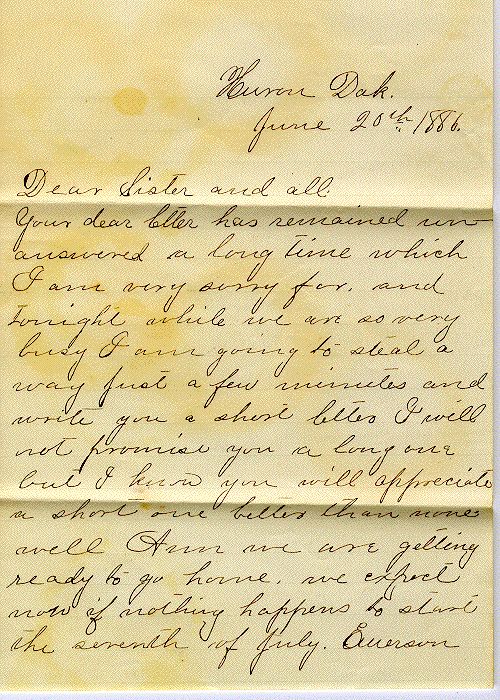 Huron Dak.
June 20th. 1886.
Dear Sister and all.
Your dear letter has remained un-
answered a long time which
I am very sorry for. and
tonight while we are so very
busy I am going to steal a
way just a few minutes and
write you a short letter I will
not promise you a long one
but I know you will appreciate
a short one better than none
well Ann we are getting
ready to go home. we expect
now if nothing happens to start
the seventh of July. Emerson